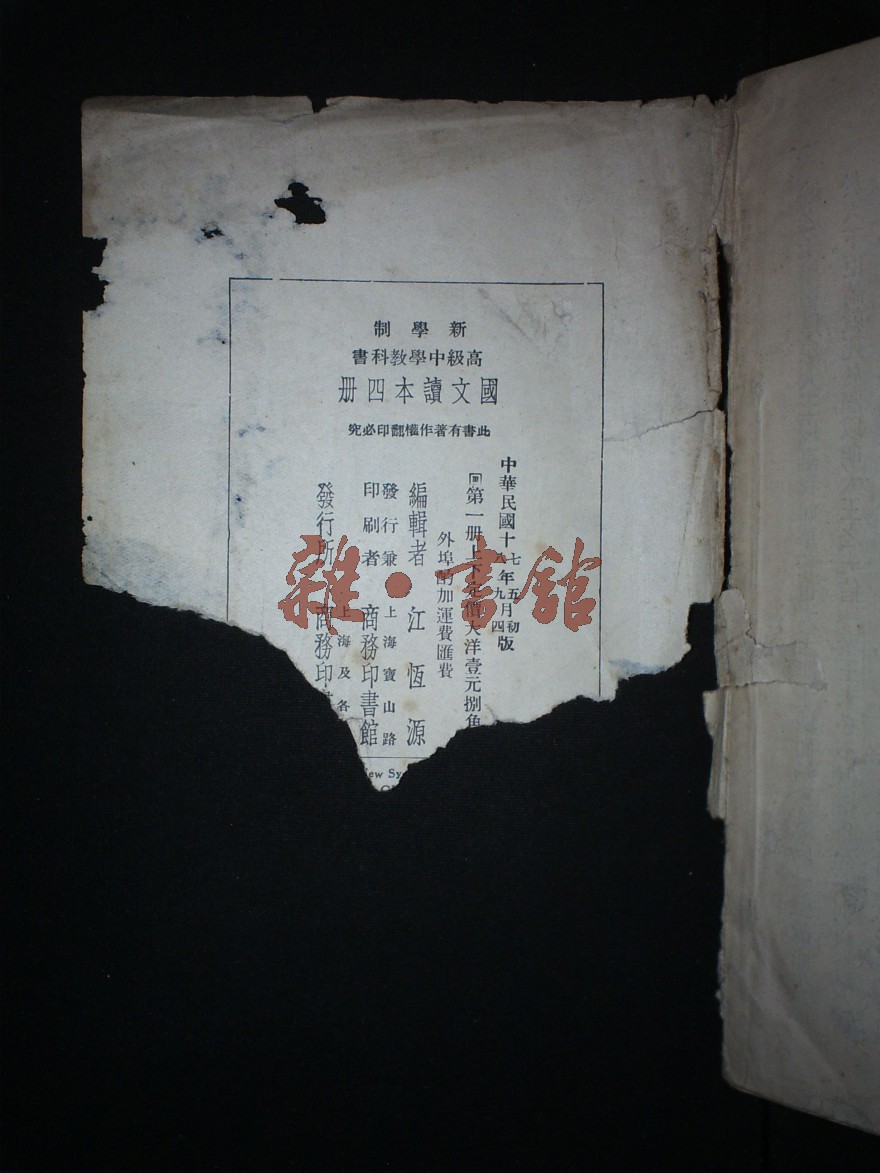 新學制
高級中學教科書
國文讀本四册
此書有著作權翻印必究
中華民國十七年五月初版
八年九月四
第一册上下定價大洋壹元捌角
外埠酌加運費匯費
編輯者 江恆源
發行兼 上海寶山路
印刷者 商務印書館
上海及各
發行所 商務印
ew Sy
雜·書舘